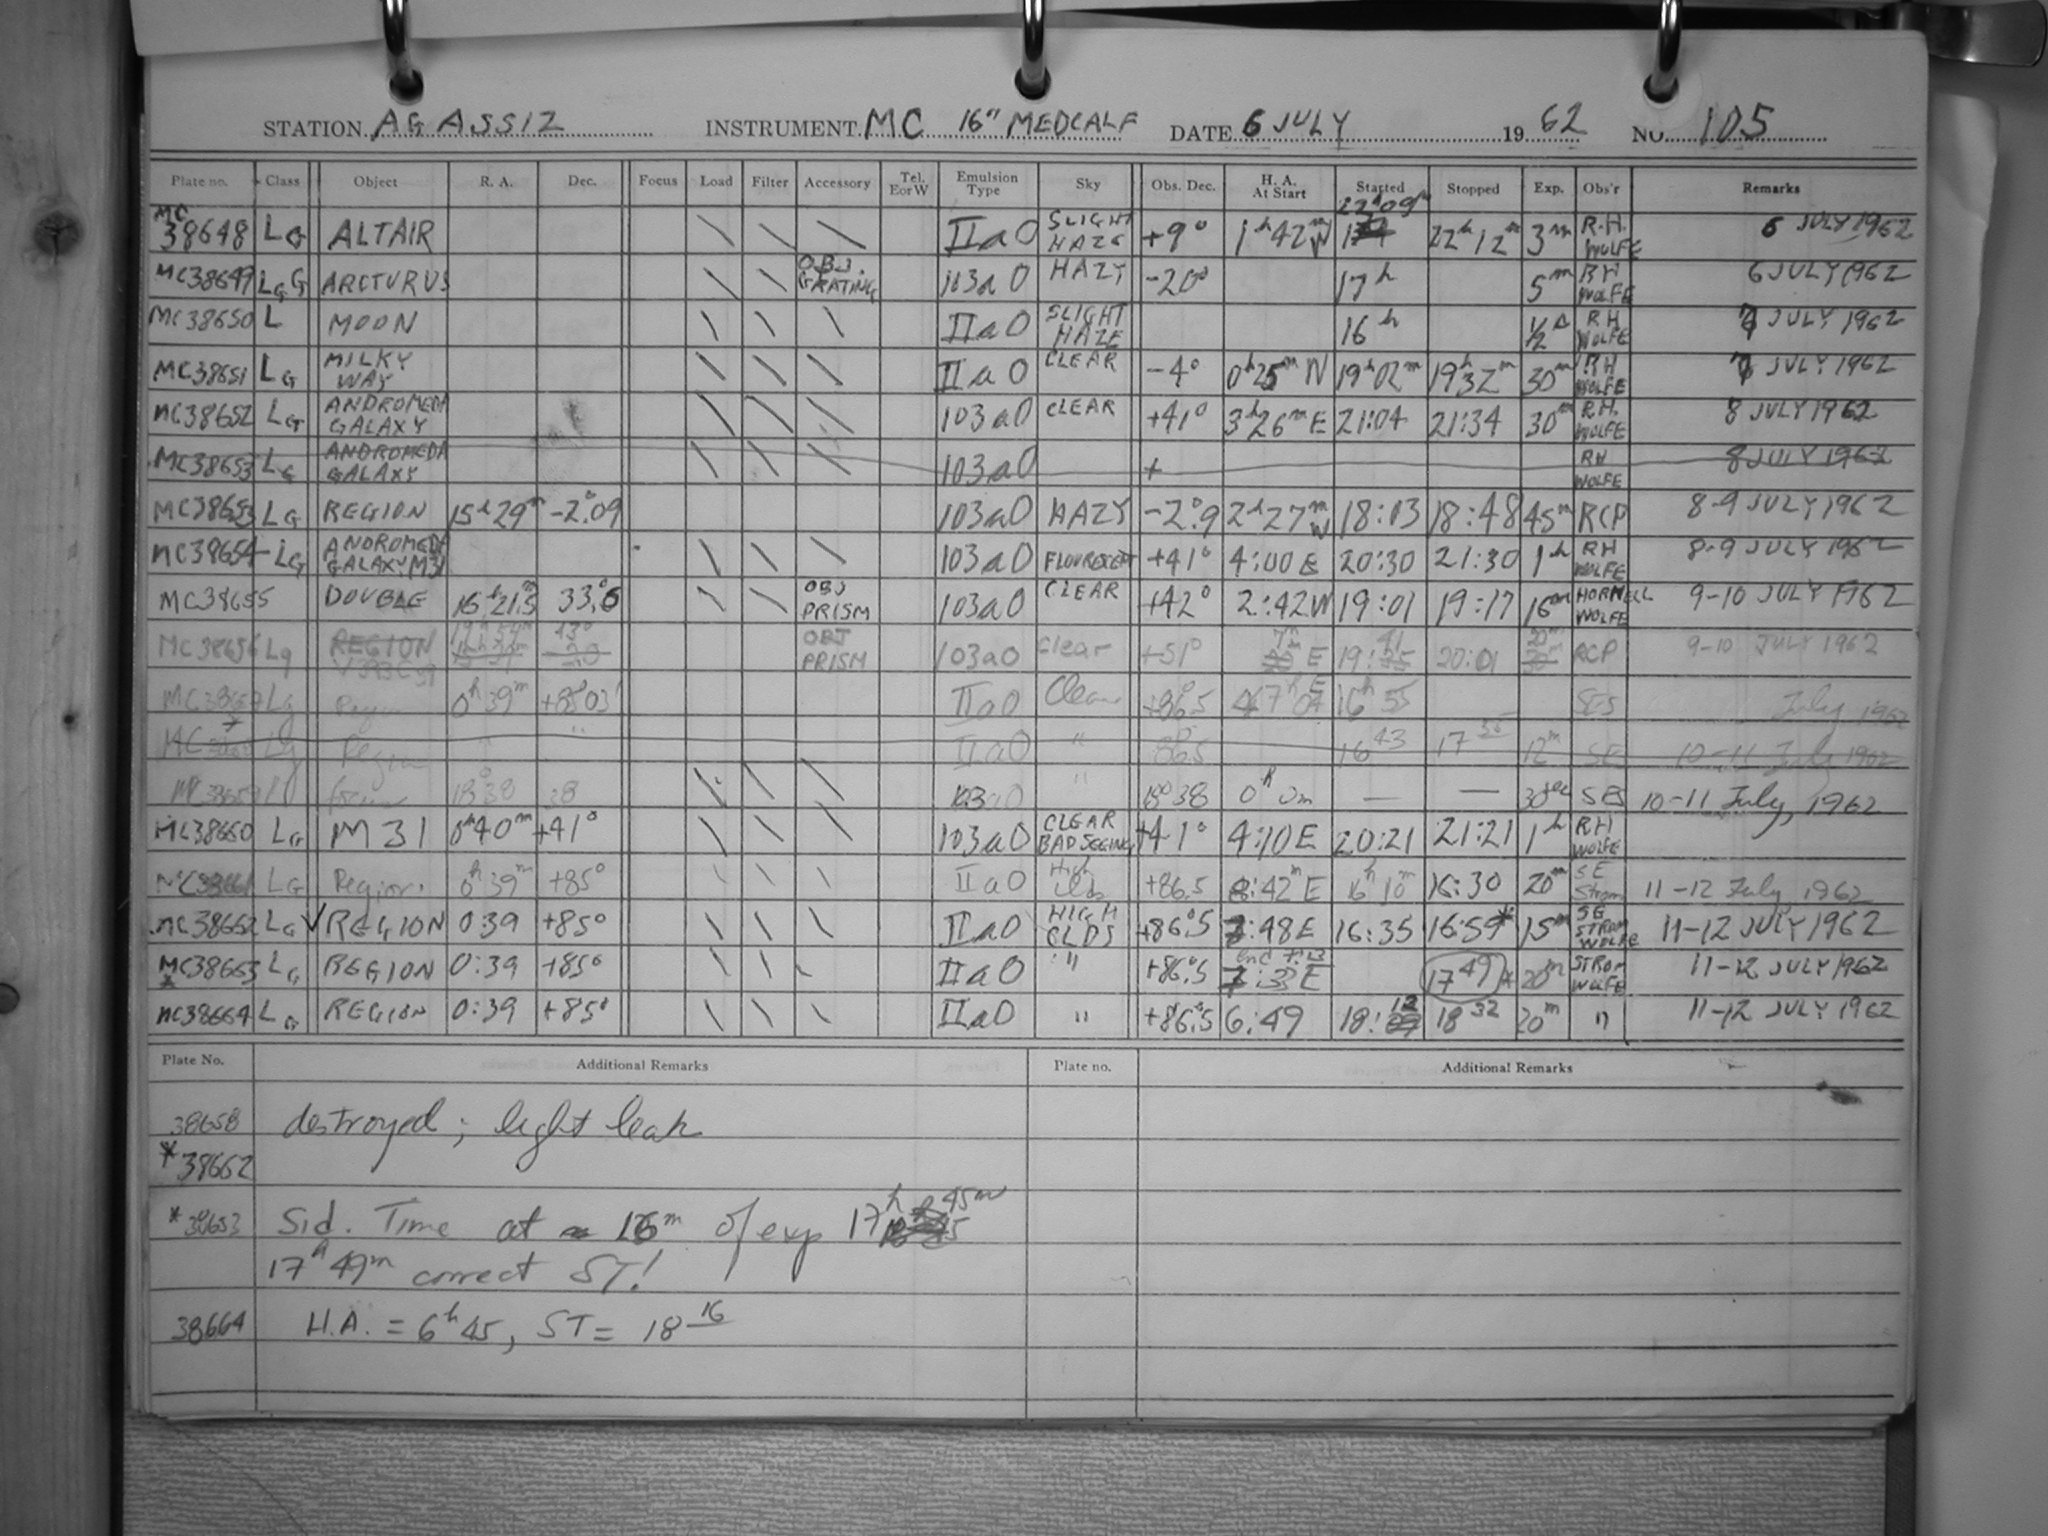 STATION AGASSIZ INSTRUMENT MC 16" MEDCALF DATE 6 JULY 1962 NO. 105
Plate no. Class Object R. A. Dec. Focus Load Filter Accessory Tel. E or W Emulsion Type Sky Obs. Dec. H. A. At Start Started Stopped Exp. Obs'r Remarks
MC 38648 LG ALTAIR \ \ \ IIaO SLIGHT HAZE +9° 1h 42m W 22h 09m 22h 12m 3m R.H. WOLFE 6 JULY 1962
MC38649 LGG ARCTURUS \ \ OBJ. GRATING 103aO HAZY -20° 17h 5m RH WOLFE 6 JULY 1962
MC38650 L MOON \ \ \ IIaO SLIGHT HAZE 16h 1/2 s RH WOLFE 7 JULY 1962
MC38651 LG MILKY WAY \ \ \ IIaO CLEAR -4° 0h25m W 19h02m 19h32m 30m RH WOLFE 7 JULY 1962
MC38652 LG ANDROMEDA GALAXY \ \ \ 103aO CLEAR +41° 3h26m E 21:04 21:34 30m R.H. WOLFE 8 JULY 1962
MC38653 LG ANDROMEDA GALAXY \ \ \ 103aO + RH WOLFE 8 JULY 1962
MC38653 LG REGION 15h29m -2°.09 103aO HAZY -2°.9 2h27m W 18:03 18:48 45m RCP 8-9 JULY 1962
MC38654 LG ANDROMEDA GALAXY M31 \ \ \ 103aO +41° 4:00 E 20:30 21:30 1h RH WOLFE 8-9 JULY 1962
MC38655 DOUBLE 16h21.3m 33°.6 \ \ OBJ PRISM 103aO CLEAR +42° 2:42W 19:01 19:17 16m HORNELL WOLFE 9-10 JULY 1962
MC38656 Lg REGION 19h 43° OBJ PRISM 103aO Clear +51° E 19:41 20:01 20m RCP 9-10 JULY 1962
MC38657 Lg Region 0h39m +85°03' IIaO Clear +86°.5 7h 04 E 16h 55 SES July 1962
MC Lg Region " " IIaO " 86.5 16 43 17 55 12m SE 10-11 July 1962
MC38659 18°38 38 \ \ \ 103aO " 38 0h 0m — — 30sec SES 10-11 July, 1962
MC38660 LG M31 0h40m +41° \ \ \ 103aO CLEAR BAD SEEING +41° 4:10 E 20:21 21:21 1h RH WOLFE
MC38661 LG Region 0h39m +85° \ \ \ IIaO High clds +86.5 8:42m E 16h 10m 16:30 20m SE Strom 11-12 July, 1962
MC38662 LG ✓ REGION 0:39 +85° \ \ \ IIaO HIGH CLDS +86°.5 7:48E 16:35 16:59* 15m SE STROM WOLFE 11-12 JULY 1962
MC38663 * LG REGION 0:39 +85° \ \ \ IIaO " +86°.5 end 7:13 7:33 E 17 49 * 20m STROM WOLFE 11-12 JULY 1962
MC38664 LG REGION 0:39 +85° \ \ \ IIaO " +86°.5 6:49 18:12 18 32 20m " 11-12 JULY 1962
Plate No. Additional Remarks Plate no. Additional Remarks
38658 destroyed; light leak
*38662
*38653 Sid. Time at 16m of exp 17h 45m
17h 49m correct ST!
38664 H.A. = 6h 45, ST = 18 16